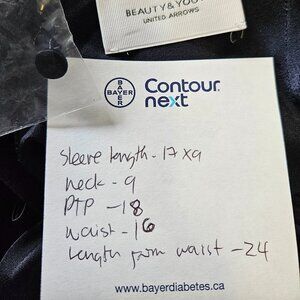 BEAUTY&YOUTH
UNITED ARROWS
BAYER
BAYER
Contour
next
Sleeve length - 17 x 9
neck - 9
PTP - 18
waist - 16
Length from waist - 24
www.bayerdiabetes.ca